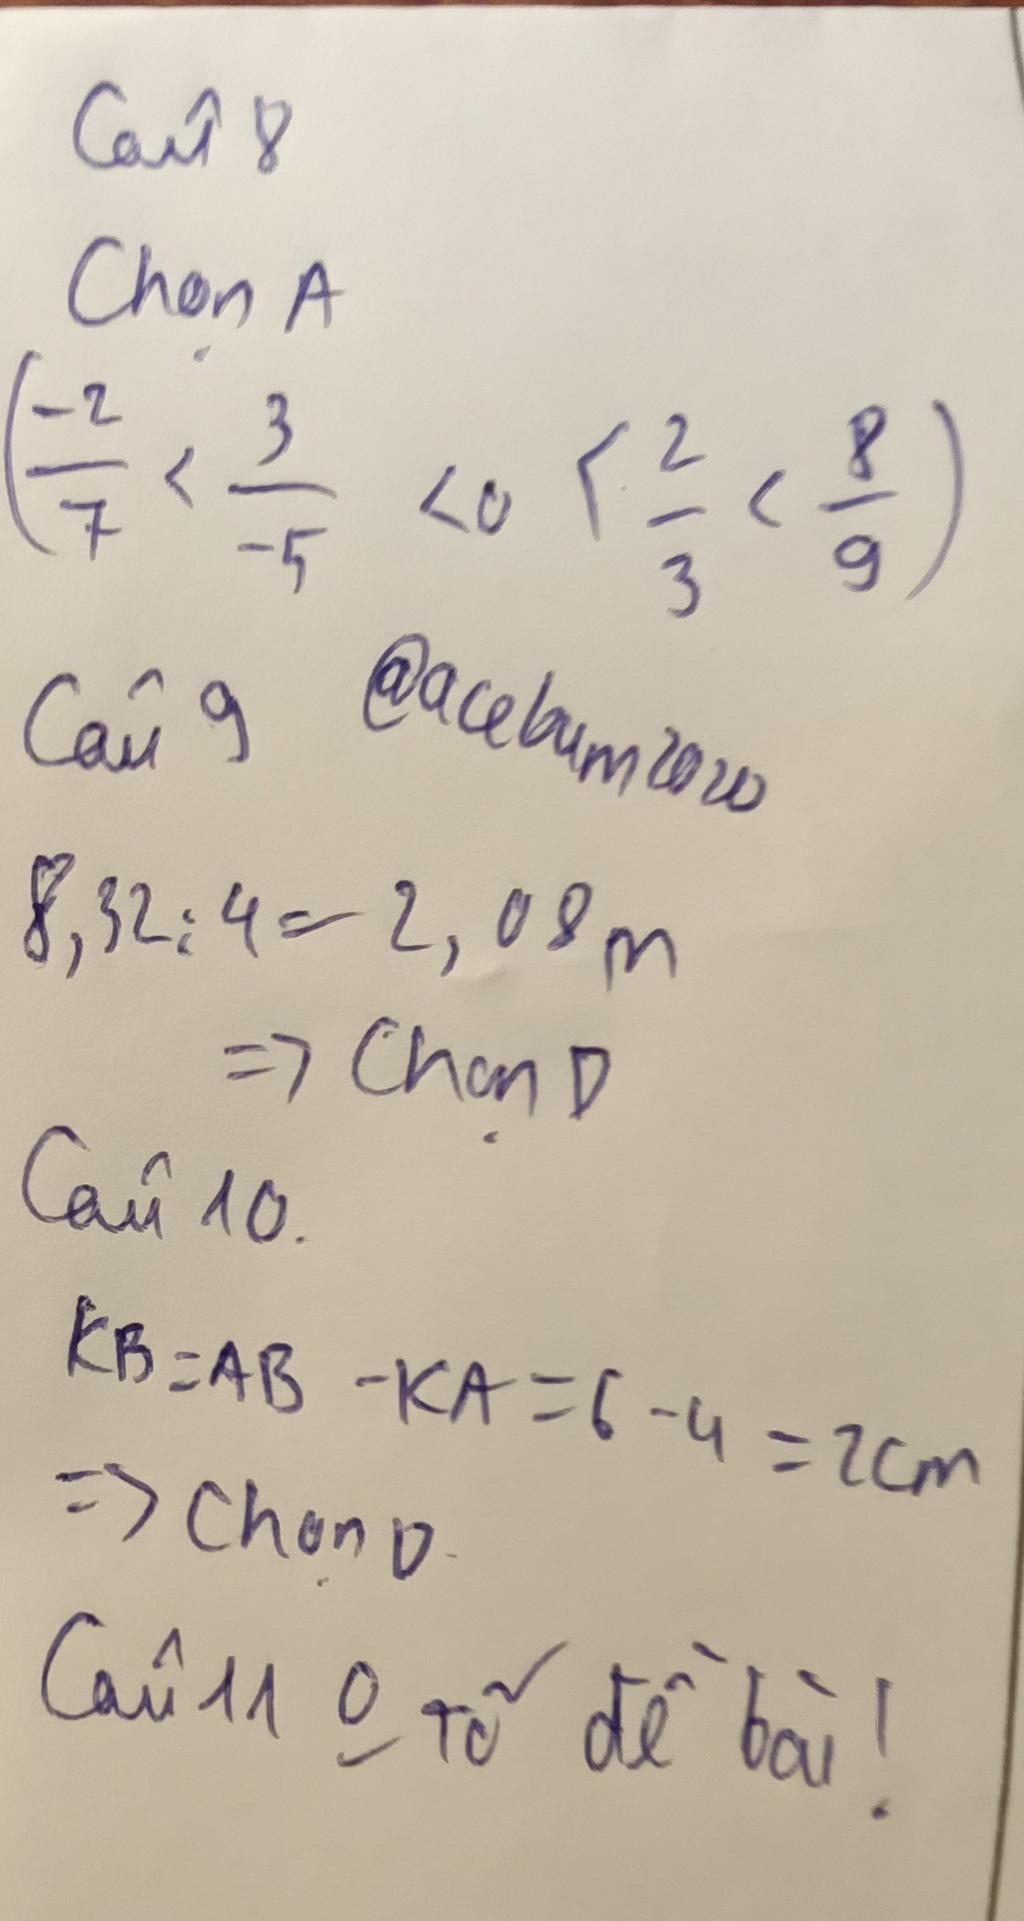 Câu 8
Chọn A
(-2/7 < 3/-5 < 0 < 2/3 < 8/9)
Câu 9 @acebum2020
8,32:4=2,08m
=> Chọn D
Câu 10.
KB=AB-KA=6-4=2cm
=> Chọn D.
Câu 11 0 rõ đề bài!